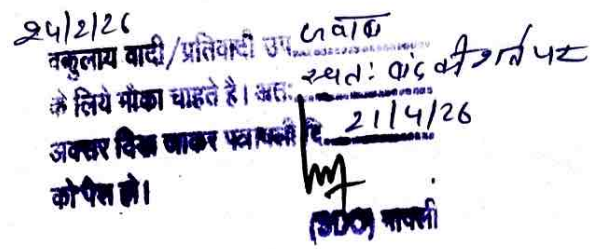 24/2/26
वकुलाय वादी/प्रतिवादी उप. जवाब
के लिये मौका चाहते है। अतः स्वतः बंद की शर्त पर
अवसर दिया जाकर पत्रावली दि. 21/4/26
को पेश हो।
(SDO) मावली